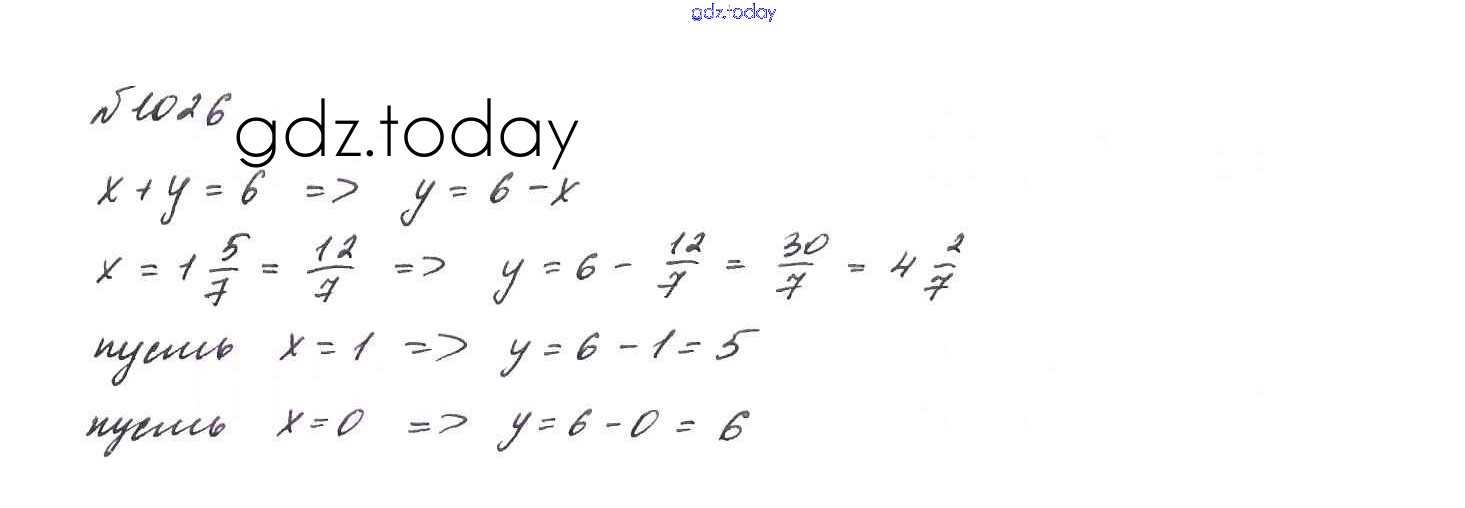 gdz.today
№1026
gdz.today
x + y = 6 => y = 6 - x
x = 1 5/7 = 12/7 => y = 6 - 12/7 = 30/7 = 4 2/7
пусть x = 1 => y = 6 - 1 = 5
пусть x = 0 => y = 6 - 0 = 6